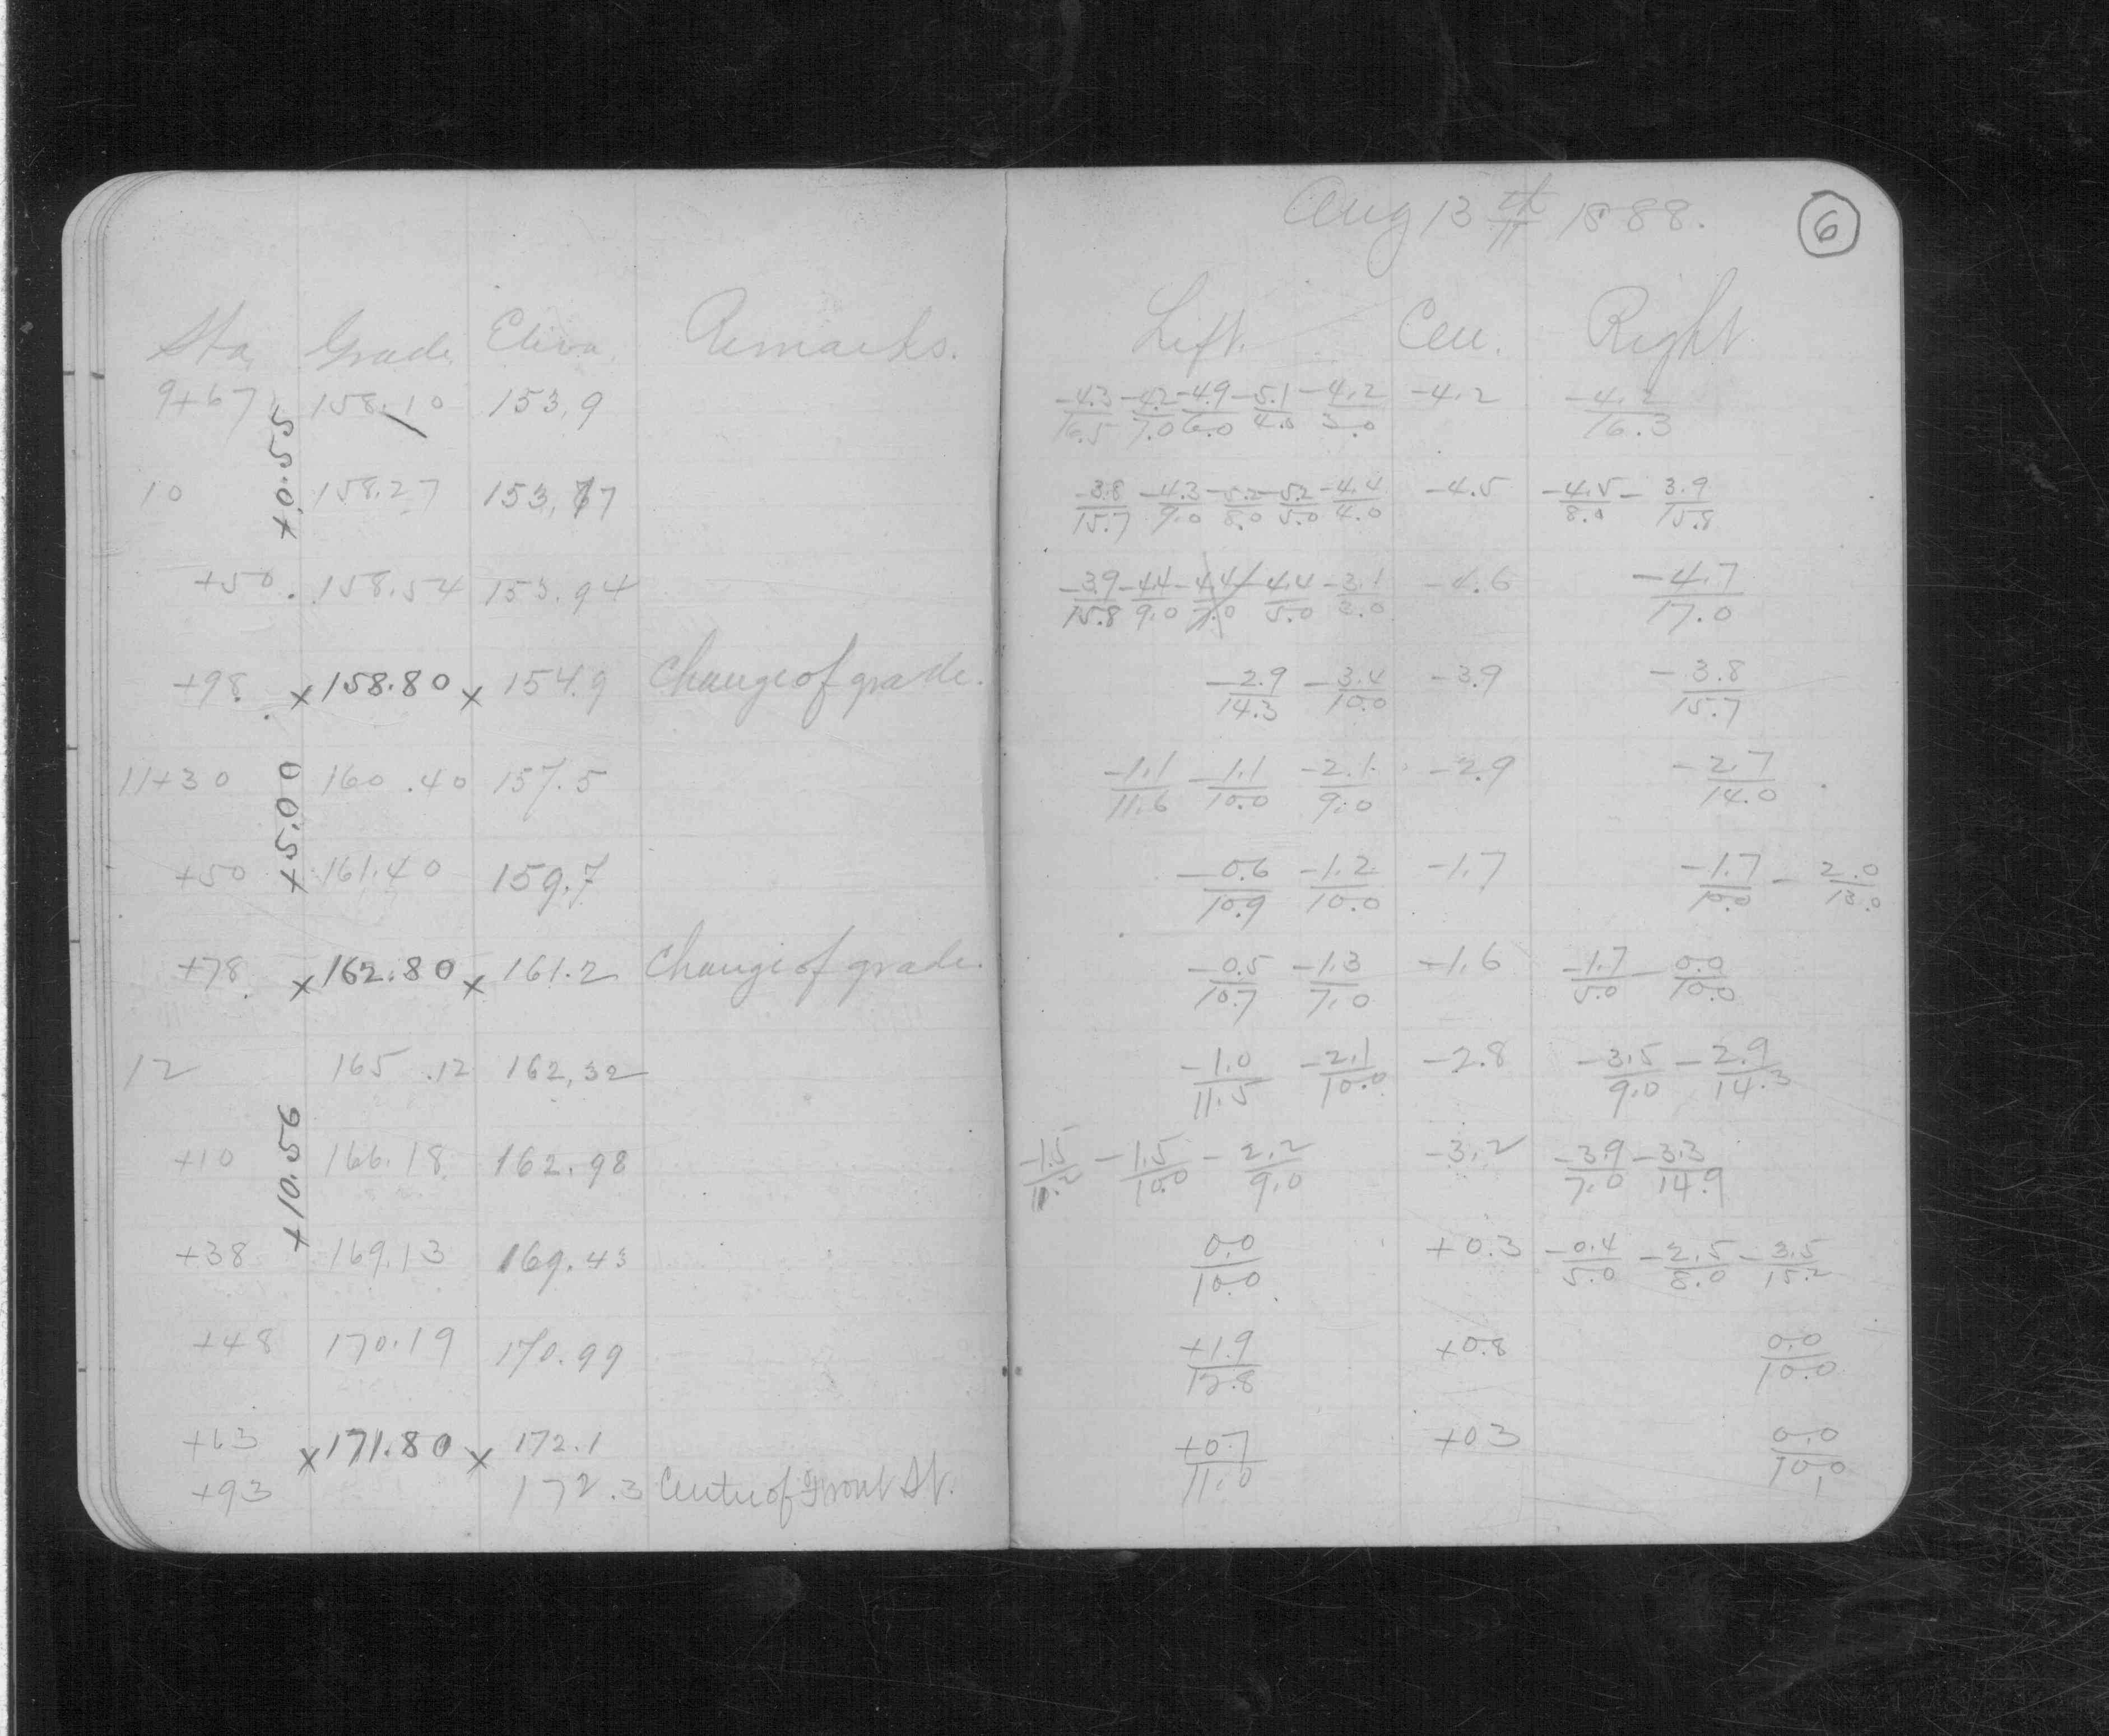 Aug 13th 1888. 6
Sta. Grade. Eleva. Remarks. Left. Cen. Right
9+67 158.10 153.9 -4.3/16.5 -4.2/7.0 -4.9/6.0 -5.1/4.0 -4.2/3.0 -4.2 -4.2/16.3
+0.55
10 158.27 153.77 -3.8/15.7 -4.3/9.0 -5.2/8.0 -5.2/5.0 -4.4/4.0 -4.5 -4.5/8.0 -3.9/15.8
+50. 158.54 153.94 -3.9/15.8 -4.4/9.0 -4.4/7.0 -4.4/5.0 -3.1/3.0 -4.6 -4.7/17.0
+98. x158.80x 154.9 Change of grade. -2.9/14.3 -3.4/10.0 -3.9 -3.8/15.7
11+30 160.40 157.5 -1.1/11.6 -1.1/10.0 -2.1/9.0 -2.9 -2.7/14.0
+5.00
+50 161.40 159.7 -0.6/10.9 -1.2/10.0 -1.7 -1.7/10.0 -2.0/13.0
+78. x162.80x 161.2 Change of grade. -0.5/10.7 -1.3/7.0 -1.6 -1.7/5.0 -0.0/10.0
12 165.12 162.32 -1.0/11.5 -2.1/10.0 -2.8 -3.5/9.0 -2.9/14.3
+10.56
+10 166.18 162.98 -1.5/11.2 -1.5/10.0 -2.2/9.0 -3.2 -3.9/7.0 -3.3/14.9
+38 169.13 169.43 0.0/10.0 +0.3 -0.4/5.0 -2.5/8.0 -3.5/15.2
+48 170.19 170.99 +1.9/12.8 +0.8 0.0/10.0
+63 x171.80x 172.1 +0.7/11.0 +0.3 0.0/10.0
+93 172.3 Centre of Front St.